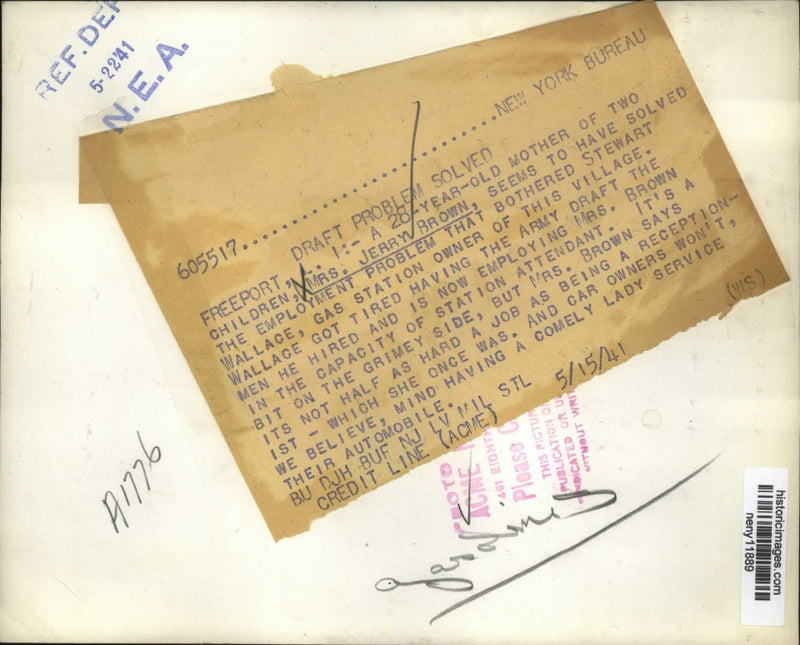 REF. DEP
5-22'41
N. E. A.
605517........................NEW YORK BUREAU
DRAFT PROBLEM SOLVED
FREEPORT, L. I:- A 26-YEAR-OLD MOTHER OF TWO
CHILDREN, MRS. JERRY BROWN, SEEMS TO HAVE SOLVED
THE EMPLOYMENT PROBLEM THAT BOTHERED STEWART
WALLACE, GAS STATION OWNER OF THIS VILLAGE.
WALLACE GOT TIRED HAVING THE ARMY DRAFT THE
MEN HE HIRED AND IS NOW EMPLOYING MRS. BROWN
IN THE CAPACITY OF STATION ATTENDANT. IT'S A
BIT ON THE GRIMEY SIDE, BUT MRS. BROWN SAYS
ITS NOT HALF AS HARD A JOB AS BEING A RECEPTION-
IST - WHICH SHE ONCE WAS. AND CAR OWNERS WON'T,
WE BELIEVE, MIND HAVING A COMELY LADY SERVICE
THEIR AUTOMOBILE.
BU DJH BUF NJ LV MIL STL 5/15/41 (WS)
CREDIT LINE (ACME)
ACME
461 EIGHTH
Please C
THIS PICTUR
PUBLICATION
SYNDICATED OR U
WITHOUT WRI
gasoline
A1776
historicimages.com
neny11889